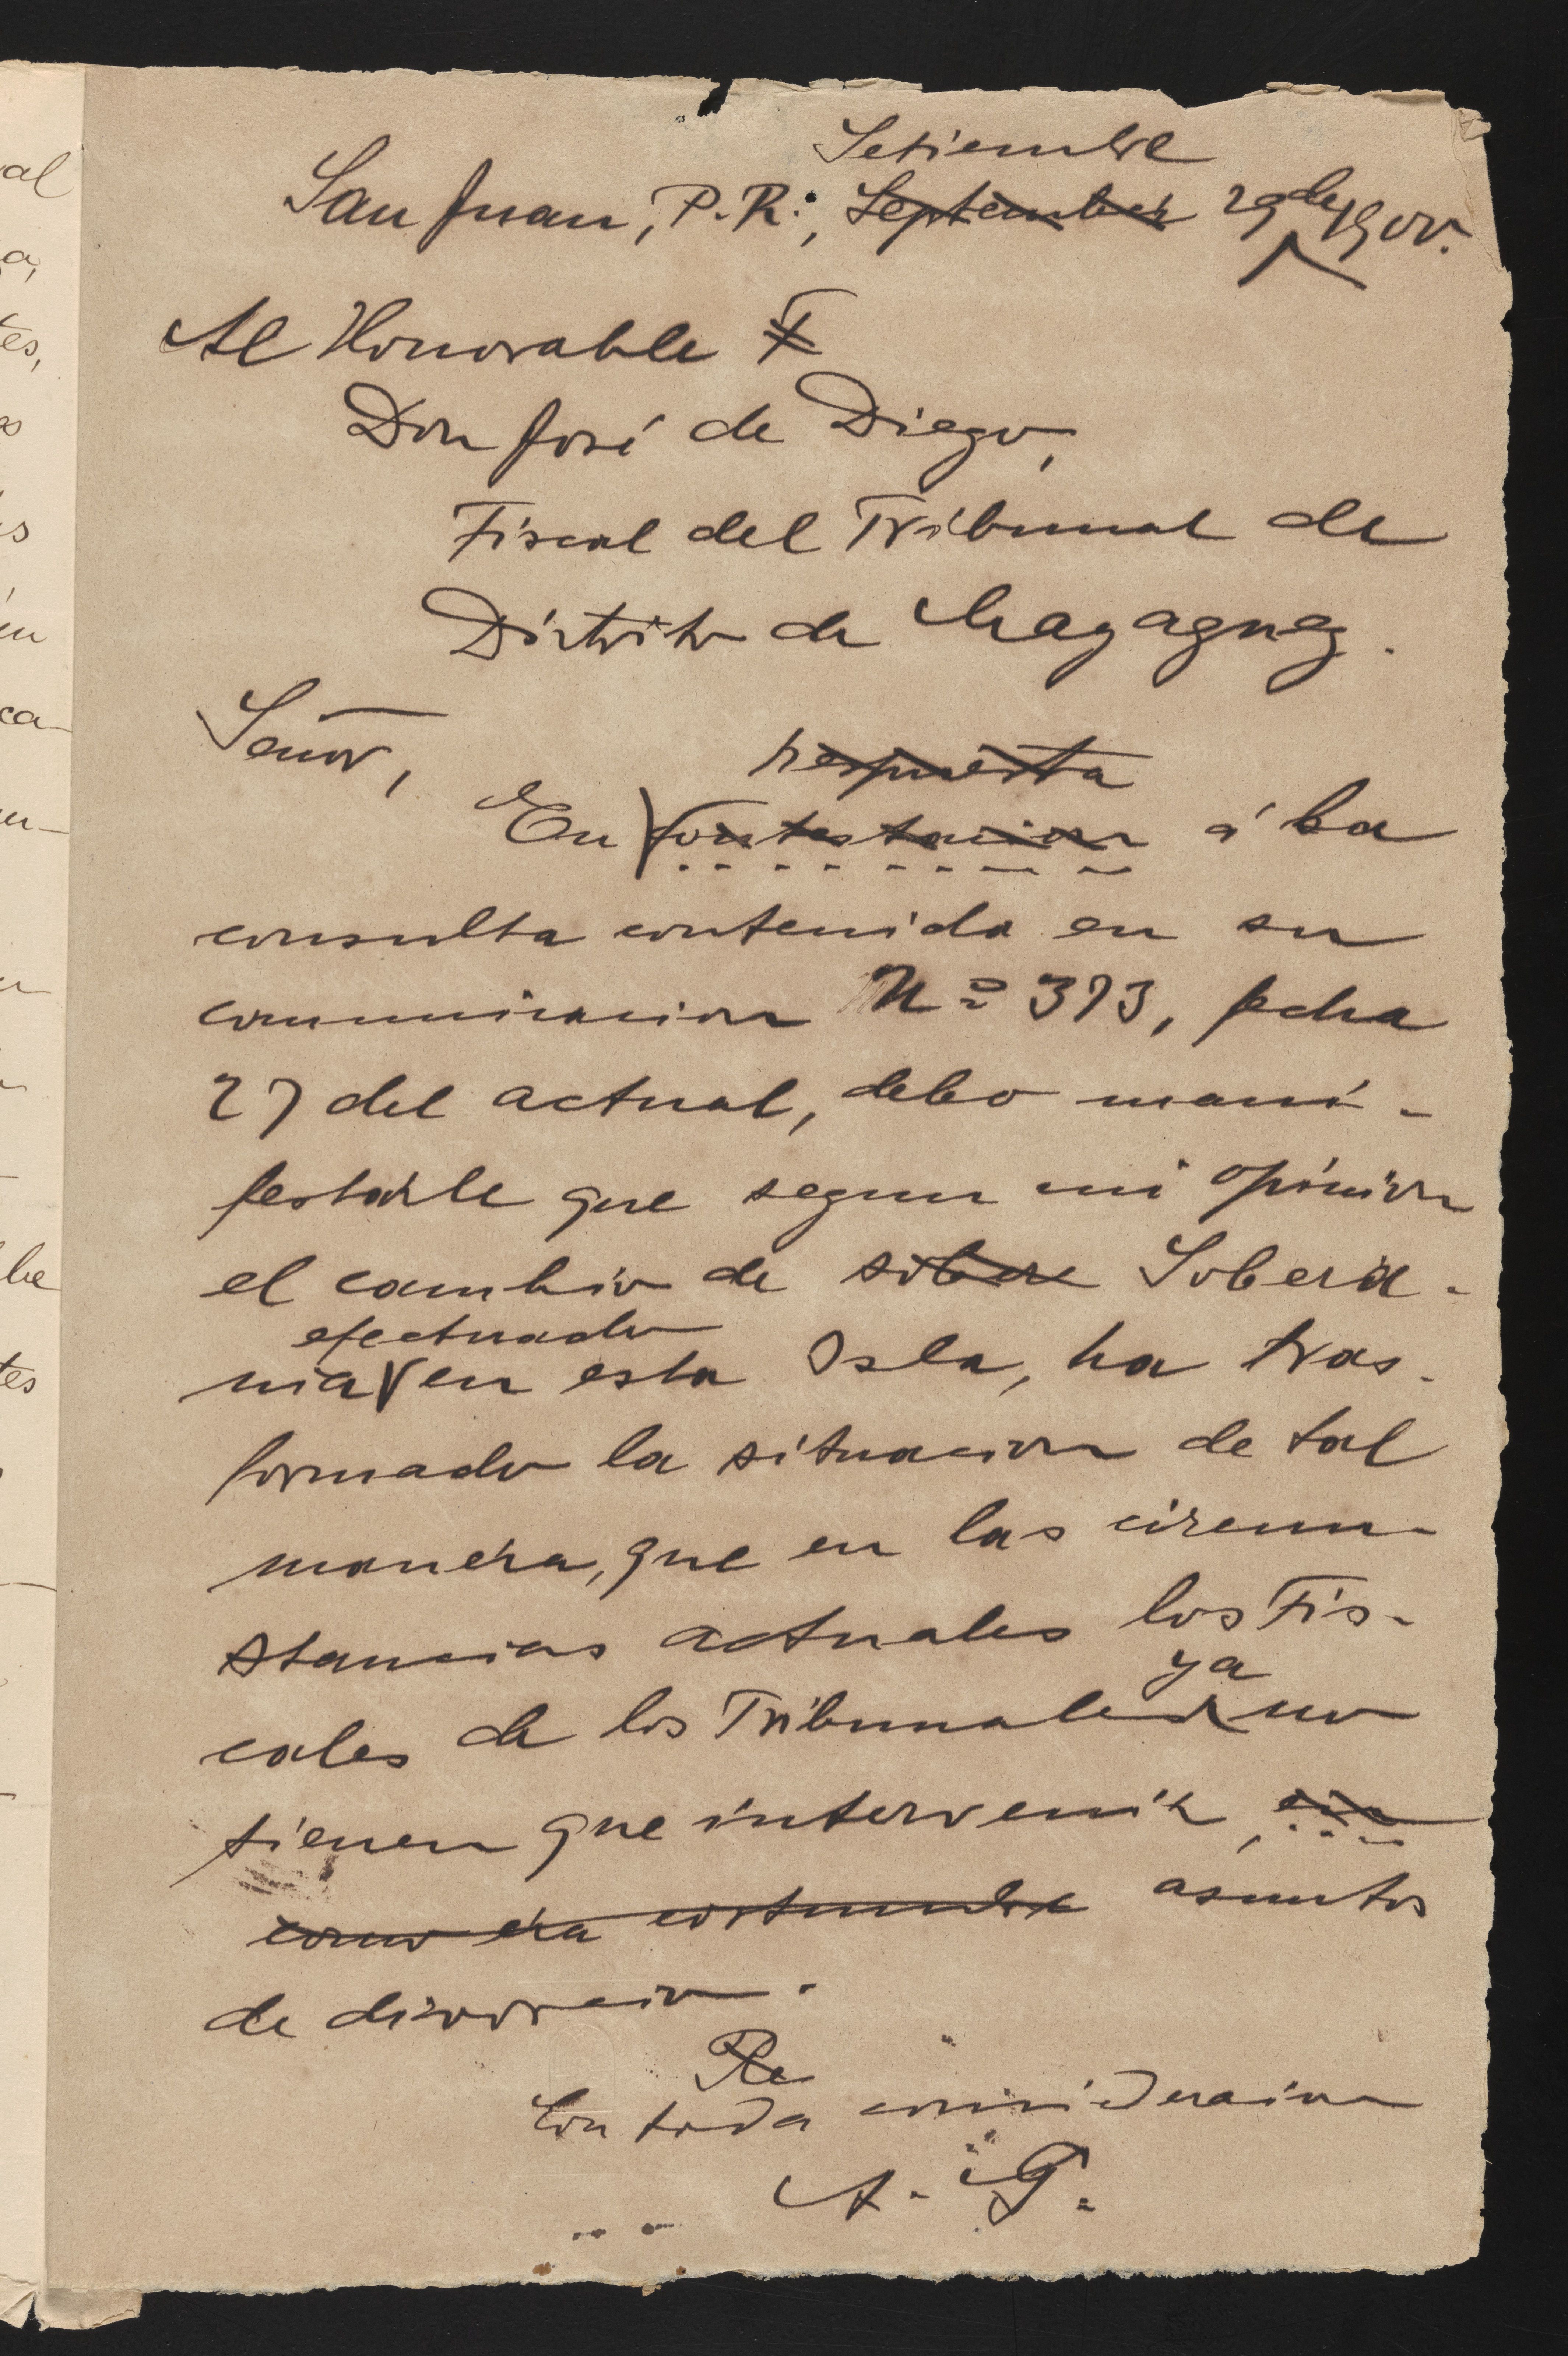 al
a,
tes,
s
en
ca-
be
tes
Setiembre
San Juan, P.R., September 29 de 1900.
Al Honorable F
Don José de Diego,
Fiscal del Tribunal de
Distrito de Mayaguez.
Señor,
respuesta
En contestacion á la
consulta contenida en su
comunicacion Nº 373, fecha
27 del actual, debo mani-
festarle que segun mi opinion
el cambio de sobere Sobera-
efectuado
nia en esta Isla, ha tras-
formado la situacion de tal
manera, que en las circun-
stancias actuales los Fis-
ya
cales de los Tribunales no
tienen que intervenir, en
como era costumbre asuntos
de divorcio.
Re
Con toda consideracion
A. G.